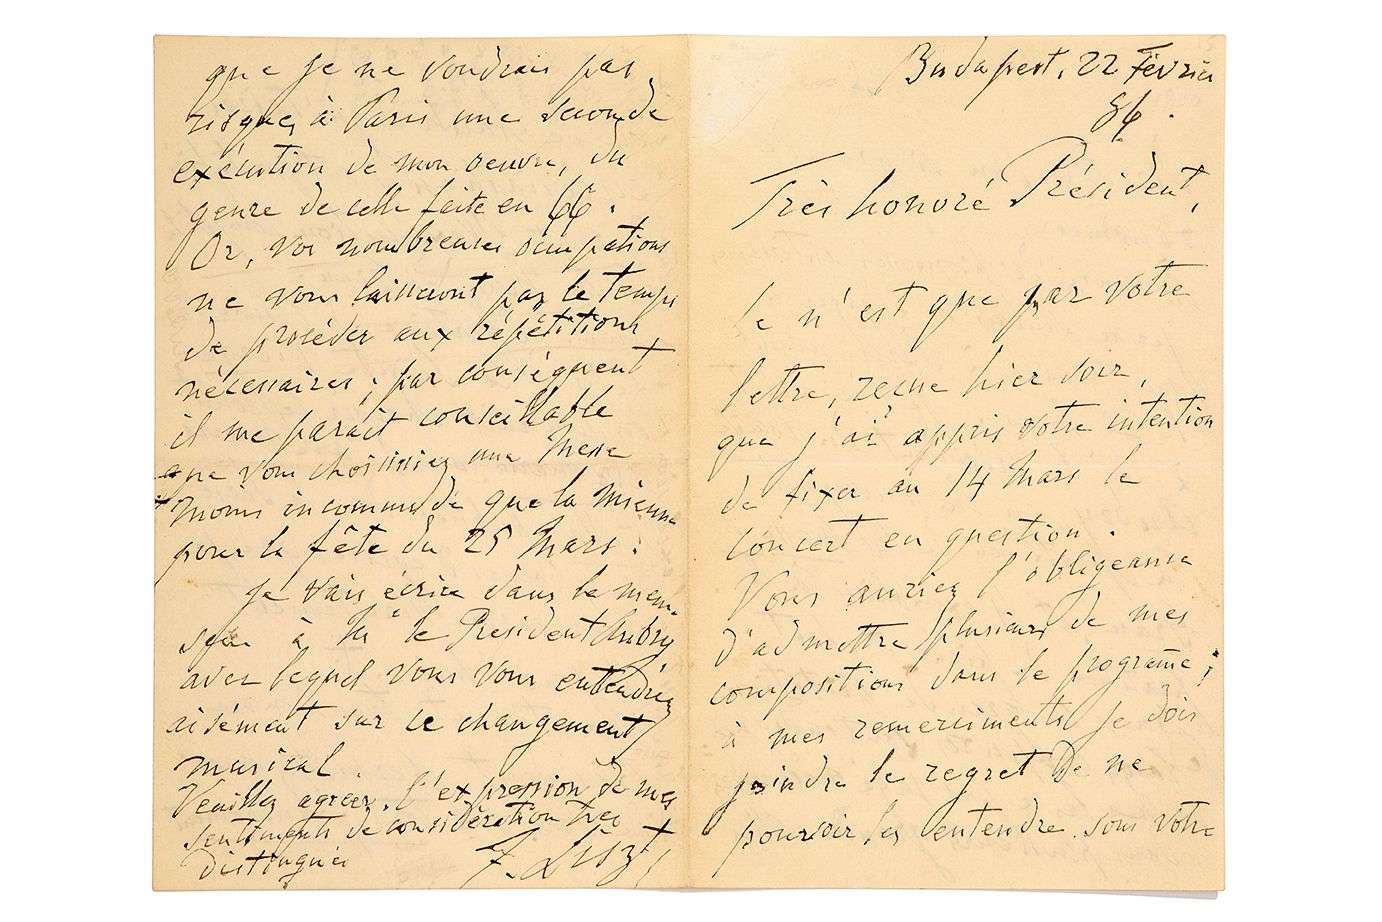 Budapest, 22 Février
86.
Très honoré Président,
Ce n'est que par votre
lettre, reçue hier soir,
que j'ai appris votre intention
de fixer au 14 Mars le
concert en question.
Vous auriez l'obligeance
d'admettre plusieurs de mes
compositions dans le programe;
à mes remerciments je dois
joindre le regret de ne
pouvoir les entendre sous votre
que je ne voudrais pas
risquer à Paris une seconde
exécution de mon oeuvre, du
genre de celle faite en 66.
Or, vos nombreuses occupations
ne vous laisseront pas le temps
de procéder aux répétitions
nécessaires; par conséquent
il me parait conseillable
que vous choisissiez une Messe
moins incommode que la mienne
pour la fête du 25 Mars.
Je vais écrire dans le même
sens à Mr le President Aubry
avec lequel vous vous entendrez
aisément sur ce changement
musical.
Veuillez agréer, l'expression de mes
sentiments de considération très
distinguée
F. Liszt